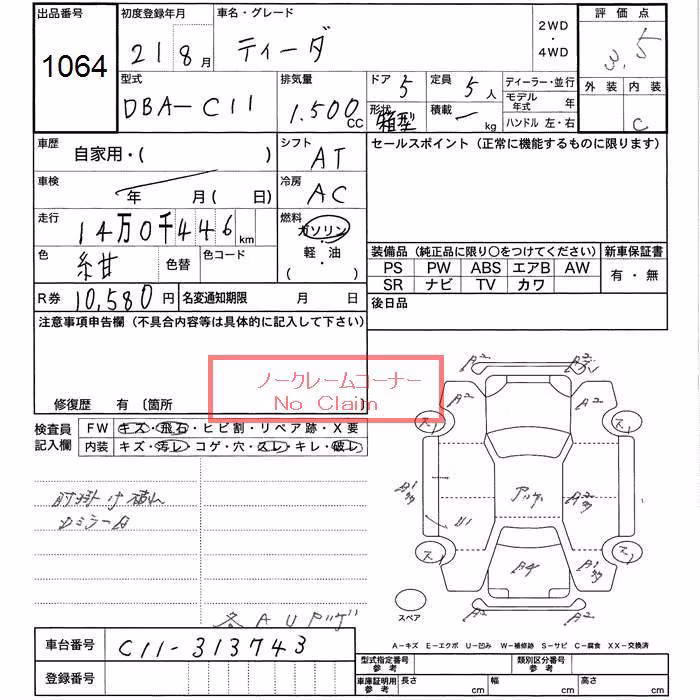 出品番号
1064
初度登録年月
21 8月
車名・グレード
ティーダ
2WD
・
4WD
評価点
3.5
型式
DBA-C11
排気量
1.500CC
ドア 5
定員 5人
形状 箱型
積載 - kg
ディーラー・並行
モデル年式 年
ハンドル 左・右
外装 内装
C
車歴
自家用・( )
シフト
AT
セールスポイント (正常に機能するものに限ります)
車検
年 月( 日)
冷房
AC
走行
14万0千446km
燃料
ガソリン
軽・油
( )
色
紺
色替
色コード
装備品 (純正品に限り〇をつけてください)
新車保証書
PS PW ABS エアB AW
SR ナビ TV カワ
有・無
R券 10,580円
名変通知期限 月 日
後日品
注意事項申告欄 (不具合内容等は具体的に記入して下さい)
ノークレームコーナー
No Claim
修復歴 有 〔箇所
検査員記入欄
FW キズ・飛石・ヒビ割・リペア跡・X要
内装 キズ・汚レ・コゲ・穴・スレ・キレ・破レ
肘掛け破れ
A2 A2
A2 A2
ス1 ス1
U1
アッゲ
ス1 ス1
A4
A2 A2
スペア
A-キズ E-エクボ U-凹み W-補修跡 S-サビ C-腐食 XX-交換済
車台番号
C11-313743
登録番号
型式指定番号 参考
類別区分番号 参考
車庫証明用 参考
長さ cm
幅 cm
高さ cm